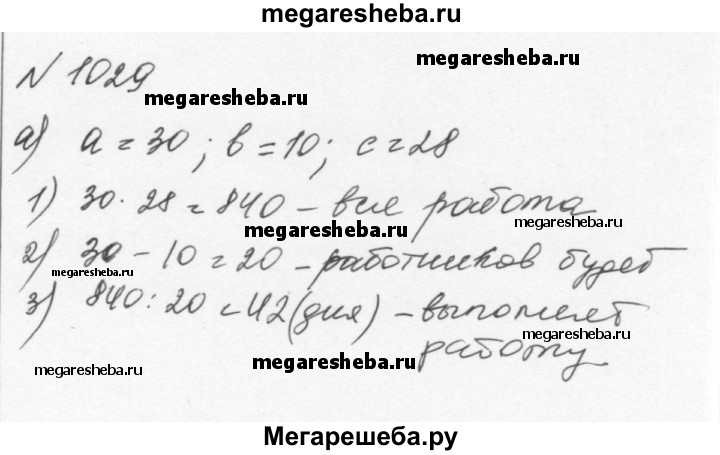 megaresheba.ru
N 1029
megaresheba.ru
megaresheba.ru
а) a = 30; b = 10; c = 28
1) 30 · 28 = 840 – вся работа
megaresheba.ru
megaresheba.ru
2) 30 – 10 = 20 – работников будет
megaresheba.ru
3) 840 : 20 = 42 (дня) – выполнет
megaresheba.ru
работу
megaresheba.ru
megaresheba.ru
Мегарешеба.ру